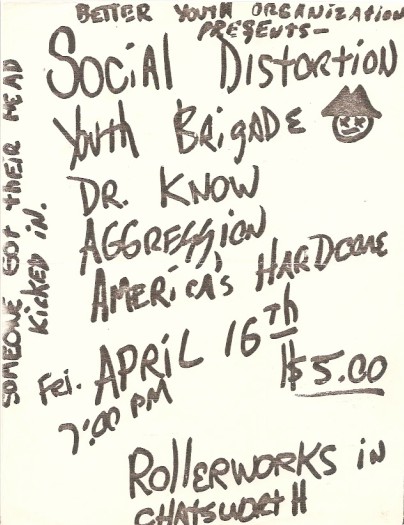 BETTER YOUTH ORGANIZATION
PRESENTS-
SOCIAL DISTORTION
YOUTH BRIGADE
DR. KNOW
AGGRESSION
AMERICA'S HARDCORE
FRI. APRIL 16TH
7:00 PM
$5.00
ROLLERWORKS IN
CHATSWORTH
SOMEONE GOT THEIR HEAD
KICKED IN.